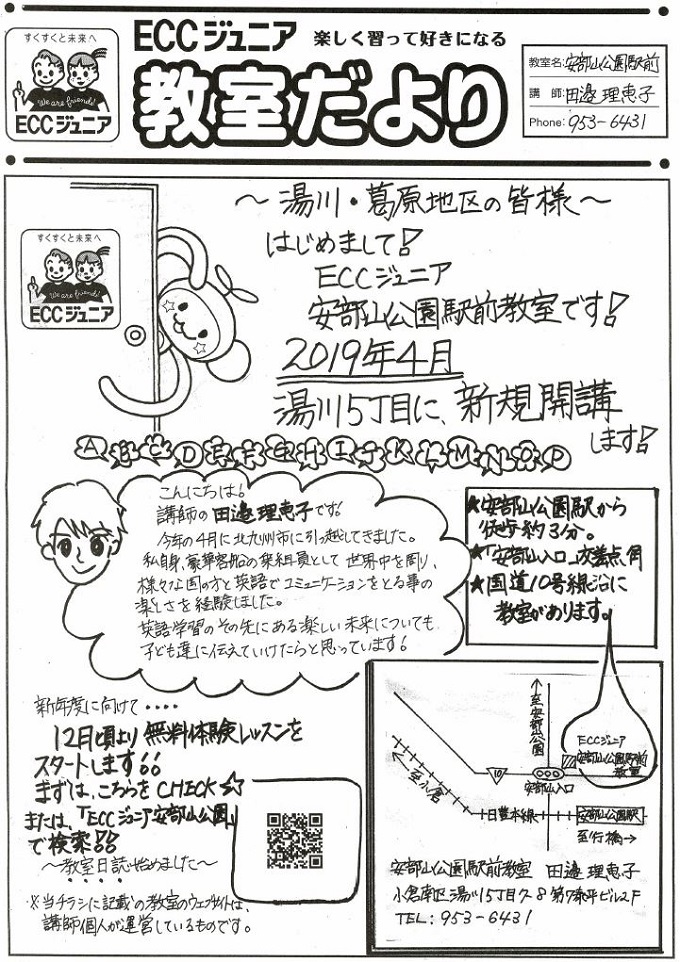 すくすくと未来へ
We are friend!
ECCジュニア
ECCジュニア 楽しく習って好きになる
教室だより
教室名:安部山公園駅前
講 師:田邉 理恵子
Phone:953-6431
~湯川・葛原地区の皆様~
はじめまして!
ECCジュニア
安部山公園駅前教室です!
2019年4月
湯川5丁目に、新規開講
します!
すくすくと未来へ
We are friend!
ECCジュニア
ABCDEFGHIJKLMNOP
こんにちは!
講師の田邉理恵子です!
今年の4月に北九州市に引っ越してきました。
私自身、豪華客船の乗組員として世界中を周り、
様々な国の方と英語でコミュニケーションをとる事の
楽しさを経験しました。
英語学習のその先にある楽しい未来についても
子ども達に伝えていけたらと思っています!
★安部山公園駅から
徒歩約3分。
★「安部山入口」交差点角
★国道10号線沿に
教室があります。
新年度に向けて・・・・
12月頃より無料体験レッスンを
スタートします!!
まずは、こちらをCHECK☆
または、「ECCジュニア安部山公園」
で検索!!
~教室日誌始めました~
※当チラシに記載の教室のウェブサイトは、
講師個人が運営しているものです。
↑至安部山公園
ECCジュニア
安部山公園駅前
教室
←至小倉
10
安部山入口
日豊本線
安部山公園駅
至行橋→
安部山公園駅前教室 田邉 理恵子
小倉南区湯川5丁目7-8 第7泰平ビル2F
TEL:953-6431